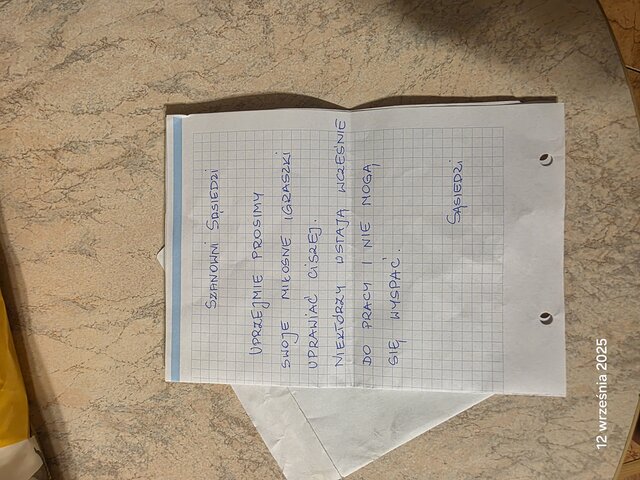 SZANOWNI SĄSIEDZI
UPRZEJMIE PROSIMY
SWOJE MIŁOSNE IGRASZKI
UPRAWIAĆ CISZEJ.
NIEKTÓRZY WSTAJĄ WCZEŚNIE
DO PRACY I NIE MOGĄ
SIĘ WYSPAĆ.
SĄSIEDZI
12 września 2025